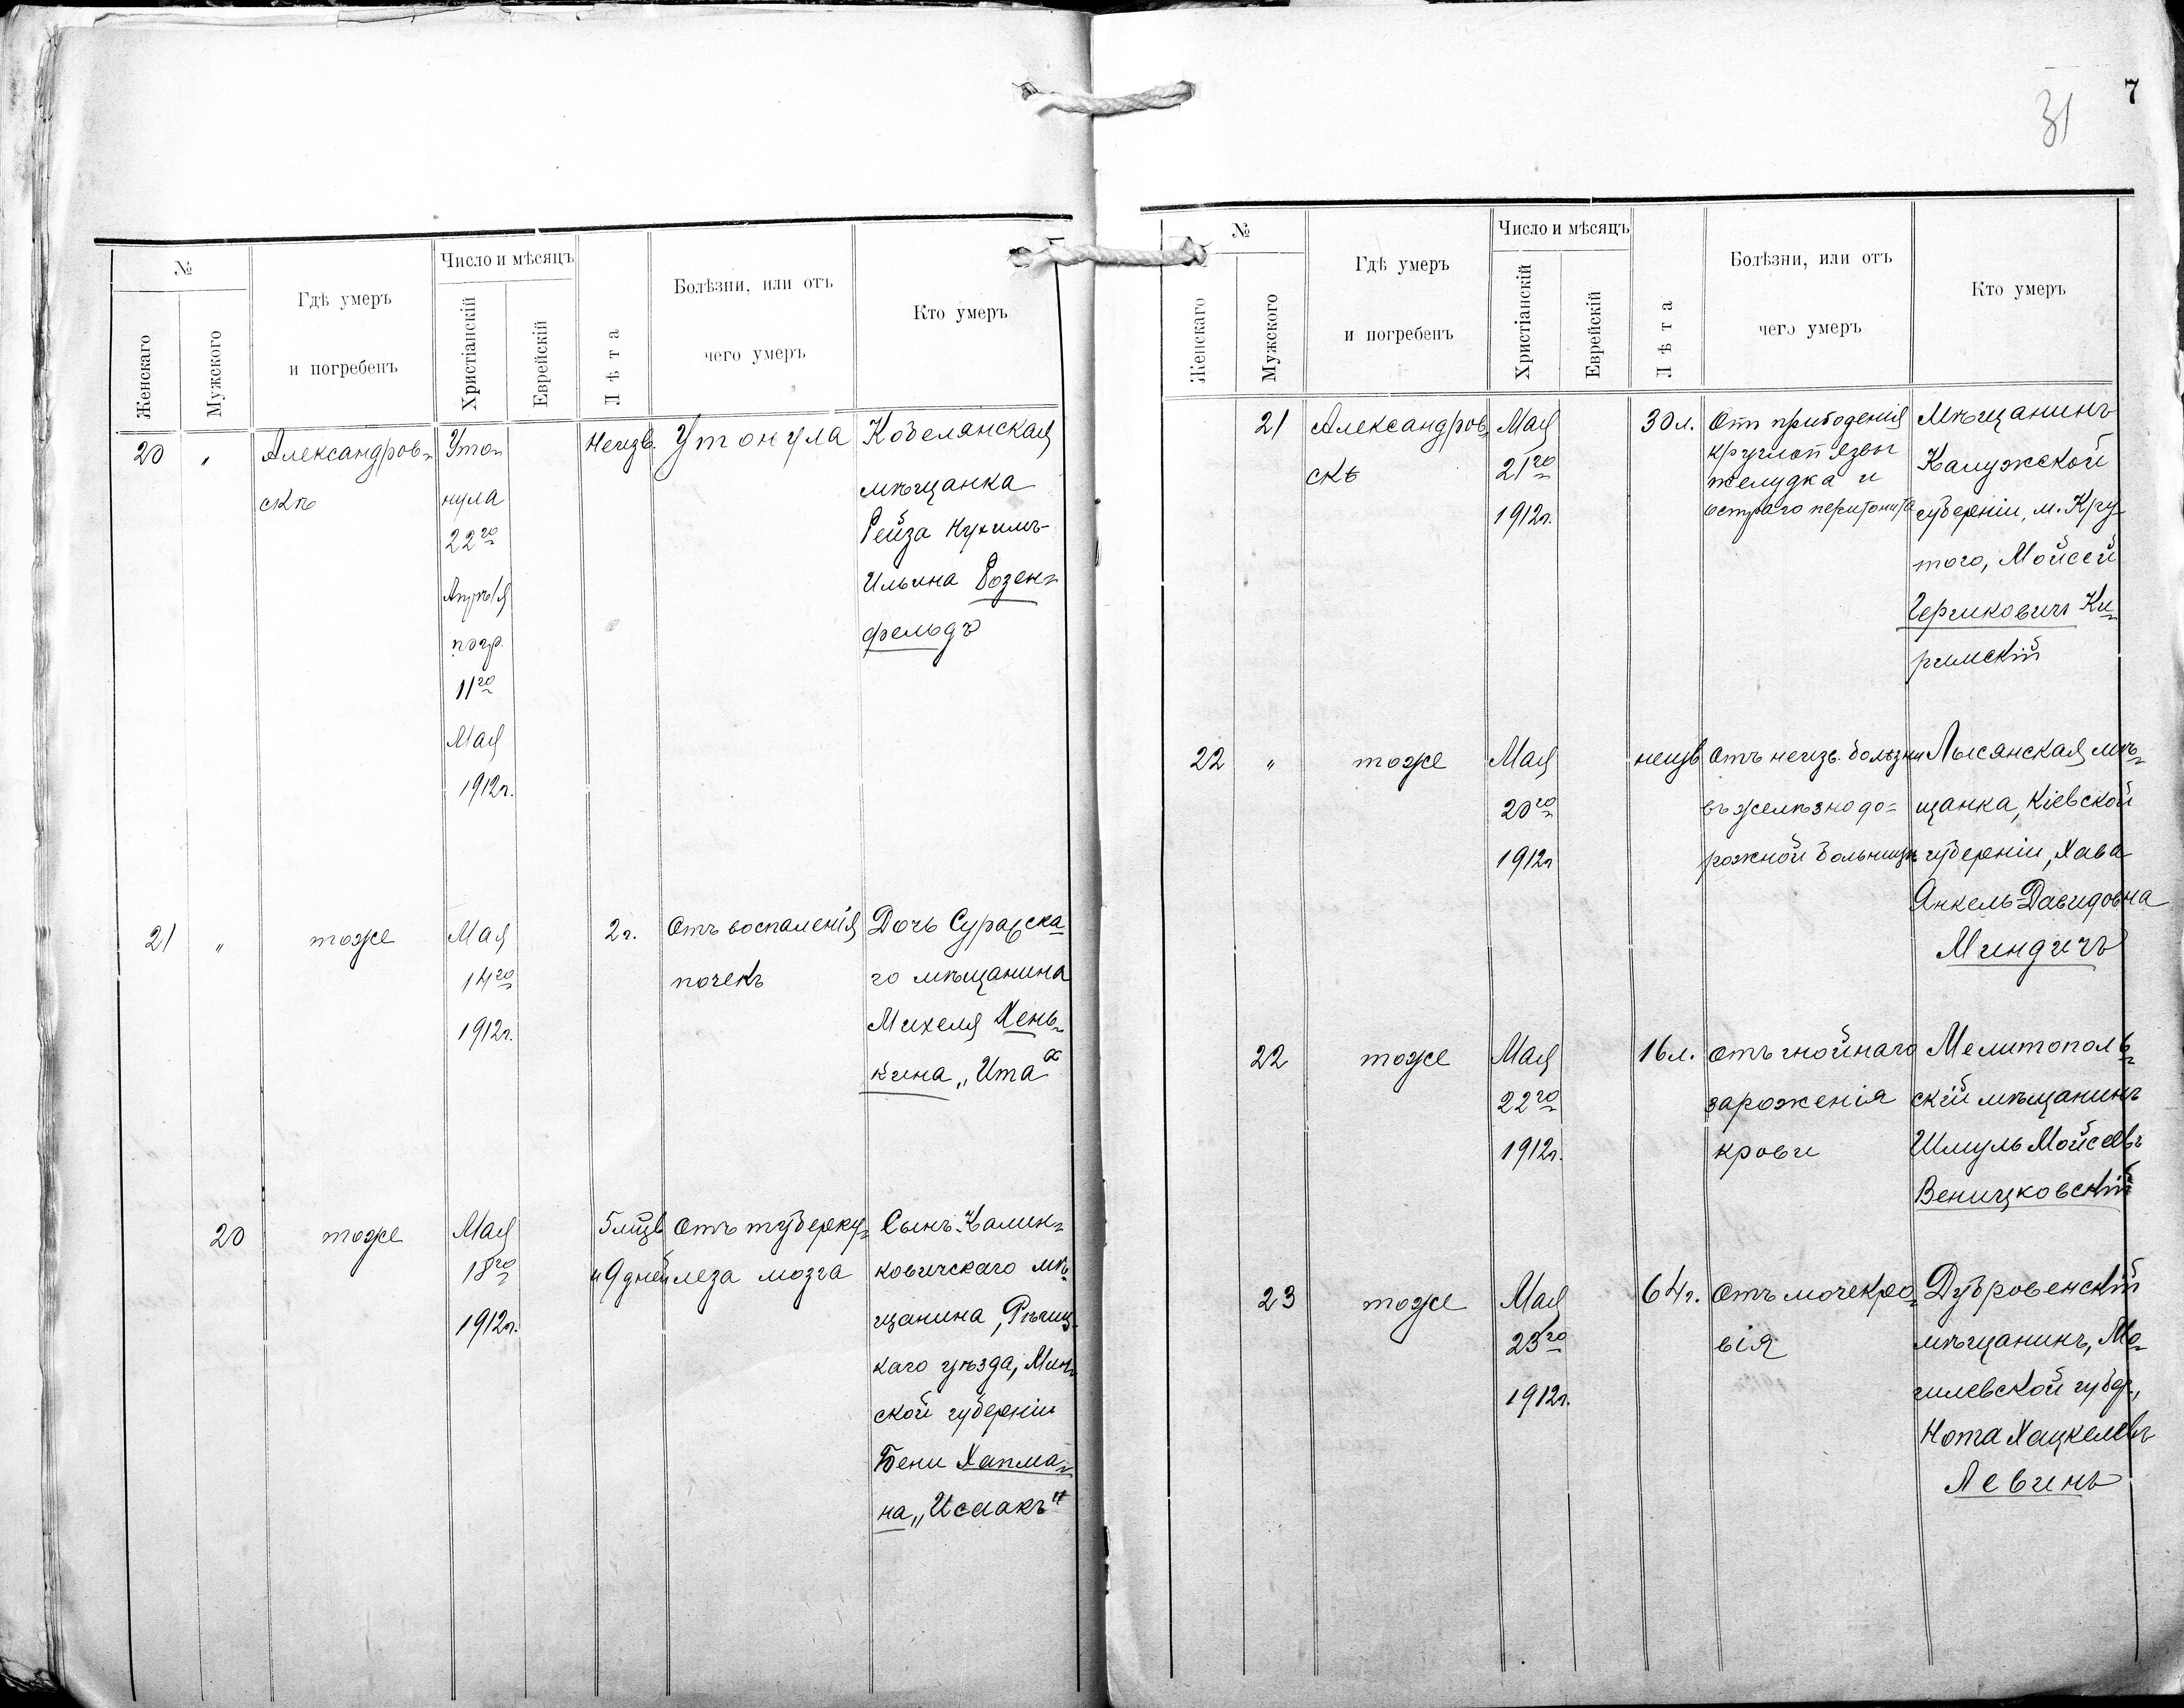 №
Женскаго
Мужского
Гдѣ умеръ
и погребенъ
Число и мѣсяцъ
Христіанскій
Еврейскій
Лѣта
Болѣзни, или отъ
чего умеръ
Кто умеръ
20 " Александров-
скѣ
Уто-
нула
22го
Апрѣля
погр.
11го
Мая
1912г.
Неизв.
Утонула
Кобелянская
мѣщанка
Рейза
Ильина Розен-
фельдъ
21 " тоже
Мая
14го
1912г.
2г.
Отъ воспаленія
почекъ
Дочь Суражска-
го мѣщанина
Михеля Хень-
кина „Ита“
20 тоже
Мая
18го
1912г.
5 мцв
и 9 дней
Отъ туберку-
леза мозга
Сынъ Калин-
ковичскаго мѣ-
щанина, Рѣчиц-
каго уѣзда, Мин-
ской губерніи
Бени Хапма-
на „Исаакъ“
7
31
№
Женскаго
Мужского
Гдѣ умеръ
и погребенъ
Число и мѣсяцъ
Христіанскій
Еврейскій
Лѣта
Болѣзни, или отъ
чего умеръ
Кто умеръ
21 Александров-
скѣ
Мая
21го
1912г.
30л.
Отъ прободенія
круглой язвы
желудка и
остраго перитонита
Мѣщанинъ
Калужской
губерніи, м. Кру-
того, Мойсей
Ки-
римскій
22 " тоже
Мая
20го
1912г
неизв
Отъ неизв. болѣзни
въ желѣзнодо-
рожной больницѣ
Лысянская мѣ-
щанка, Кіевской
губерніи, Хава
Янкель-Давидовна
Миндичъ
22 тоже
Мая
22го
1912г.
16л.
Отъ гнойнаго
зароженія
крови
Мелитополь-
скій мѣщанинъ
Шмуль Мойсеевъ
Веничковскій
23 тоже
Мая
23го
1912г.
64г.
Отъ мочекро-
вія
Дубровенскій
мѣщанинъ, Мо-
гилевской губер.,
Нота Хацкелевъ
Левинъ